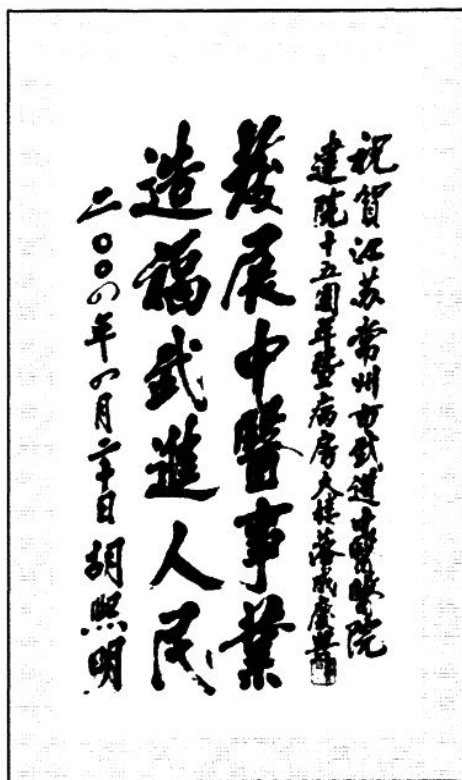 祝賀江苏常州市武進中醫醫院
建院十五周年暨病房大楼落成慶典
發展中醫事業
造福武進人民
二〇〇四年四月二十日 胡熙明